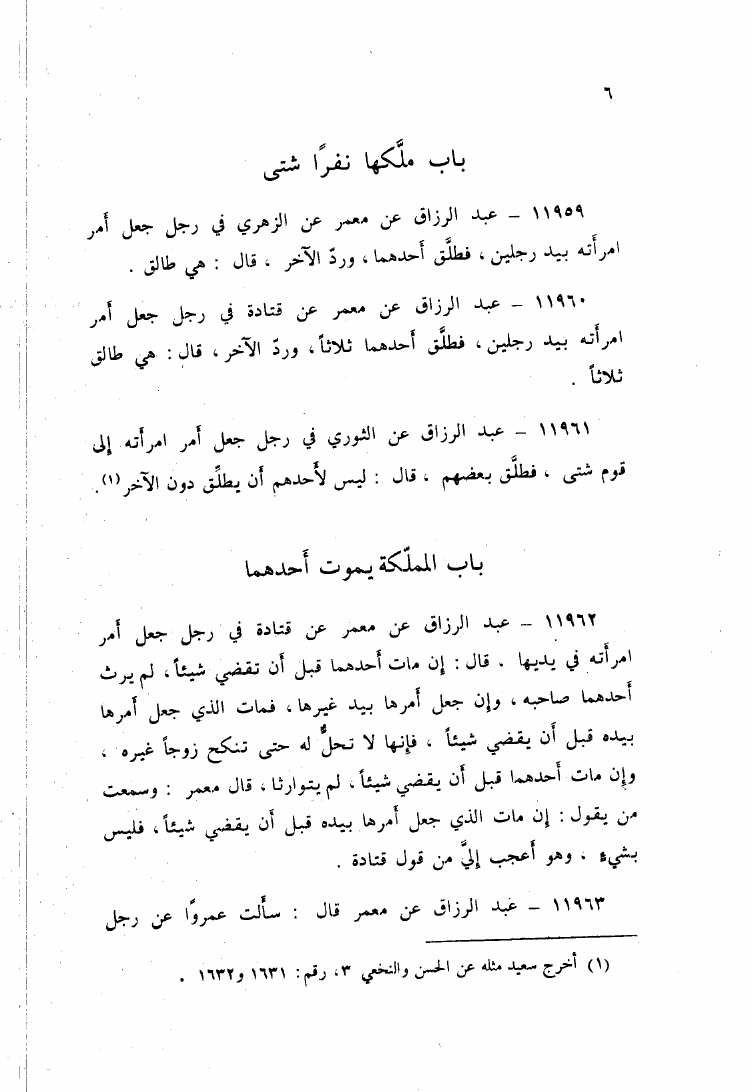 ٦
باب ملَّكها نفرًا شتى
١١٩٥٩ – عبد الرزاق عن معمر عن الزهري في رجل جعل أمر
امرأته بيد رجلين، فطلَّق أحدهما، وردّ الآخر ، قال : هي طالق .
١١٩٦٠ – عبد الرزاق عن معمر عن قتادة في رجل جعل أمر
امرأته بيد رجلين، فطلَّق أحدهما ثلاثاً، وردّ الآخر، قال: هي طالق
ثلاثاً .
١١٩٦١ – عبد الرزاق عن الثوري في رجل جعل أمر امرأته إلى
قوم شتى ، فطلَّق بعضهم ، قال : ليس لأحدهم أن يطلِّق دون الآخر(١).
باب المملّكة يموت أحدهما
١١٩٦٢ – عبد الرزاق عن معمر عن قتادة في رجل جعل أمر
امرأته في يديها . قال : إن مات أحدهما قبل أن تقضي شيئاً، لم يرث
أحدهما صاحبه، وإن جعل أمرها بيد غيرها، فمات الذي جعل أمرها
بيده قبل أن يقضي شيئاً ، فإنها لا تحلُّ له حتى تنكح زوجاً غيره ،
وإن مات أحدهما قبل أن يقضي شيئاً، لم يتوارثا، قال معمر : وسمعت
من يقول : إن مات الذي جعل أمرها بيده قبل أن يقضي شيئاً، فليس
بشيءٍ ، وهو أعجب إليَّ من قول قتادة .
١١٩٦٣ – عبد الرزاق عن معمر قال : سألت عمروًا عن رجل
(١) أخرج سعيد مثله عن الحسن والنخعي ٣، رقم: ١٦٣١ و١٦٣٢ .